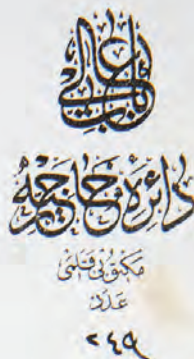 باب عالی
دائرهٔ خارجیه
مکتوبی قلمی
عدد
٢٤٩